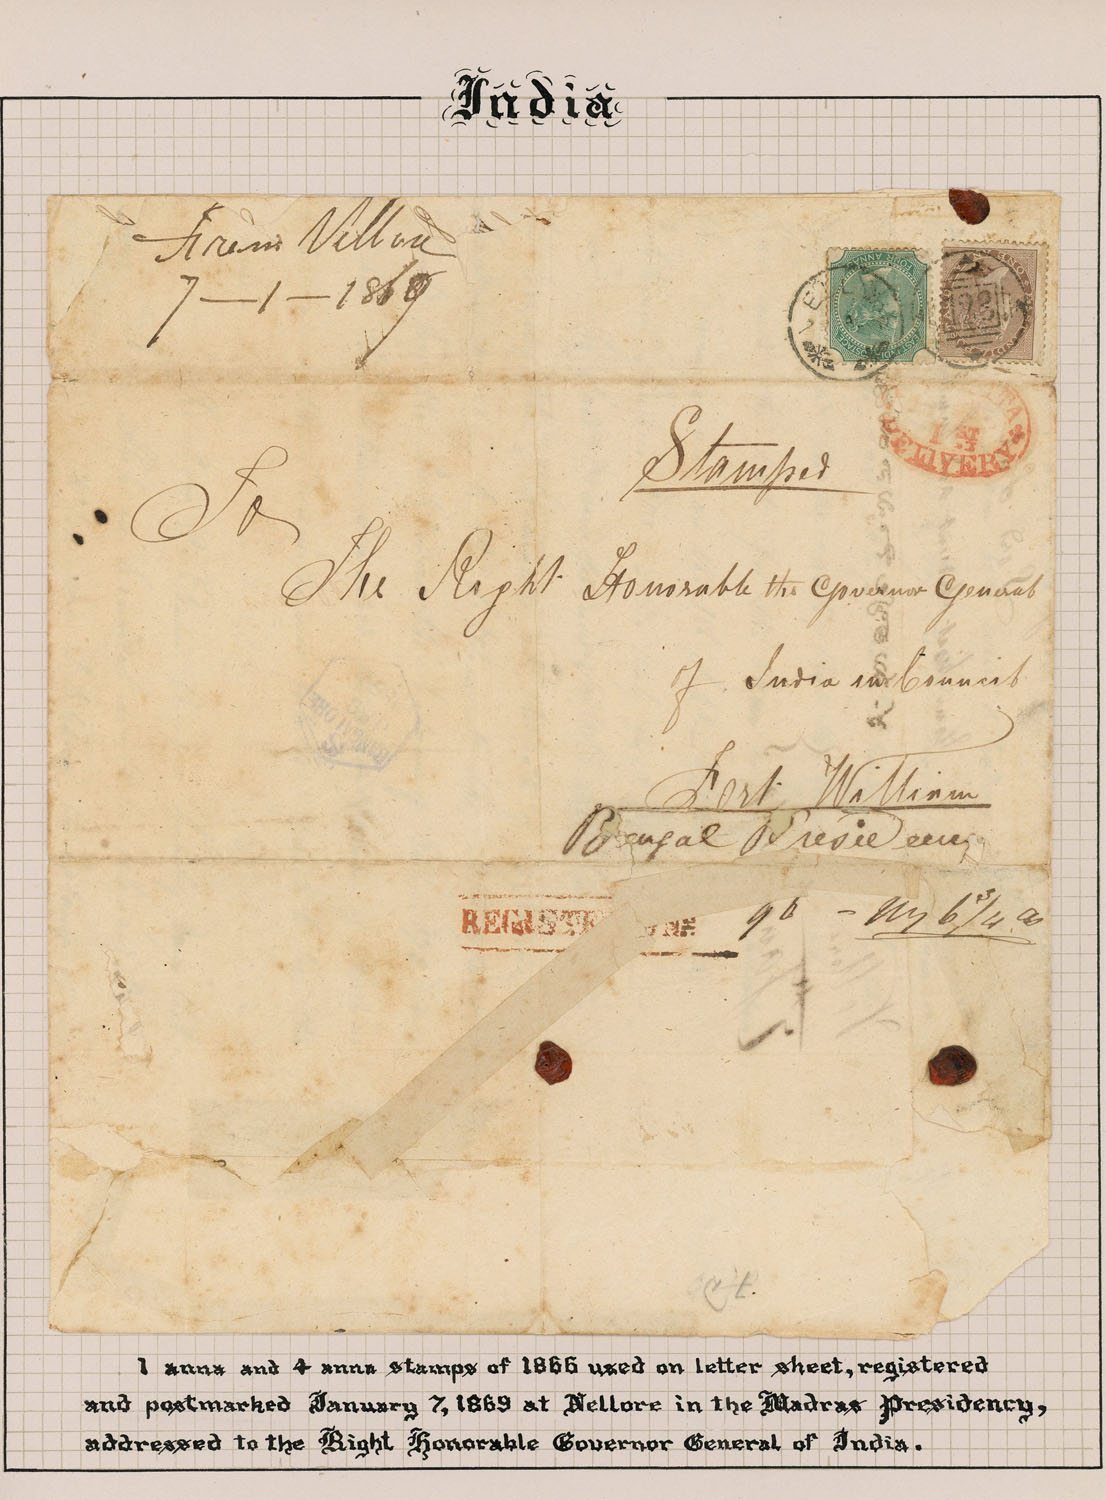 India
From Vellore
7 — 1 — 1869
FOUR ANNAS
ONE ANNA
DELIVERY
Stamped
To
The Right Honorable the Governor General
of India in Council
Fort William
Bengal Presidency
REGISTERED
1 anna and 4 anna stamps of 1866 used on letter sheet, registered
and postmarked January 7, 1869 at Nellore in the Madras Presidency,
addressed to the Right Honorable Governor General of India.